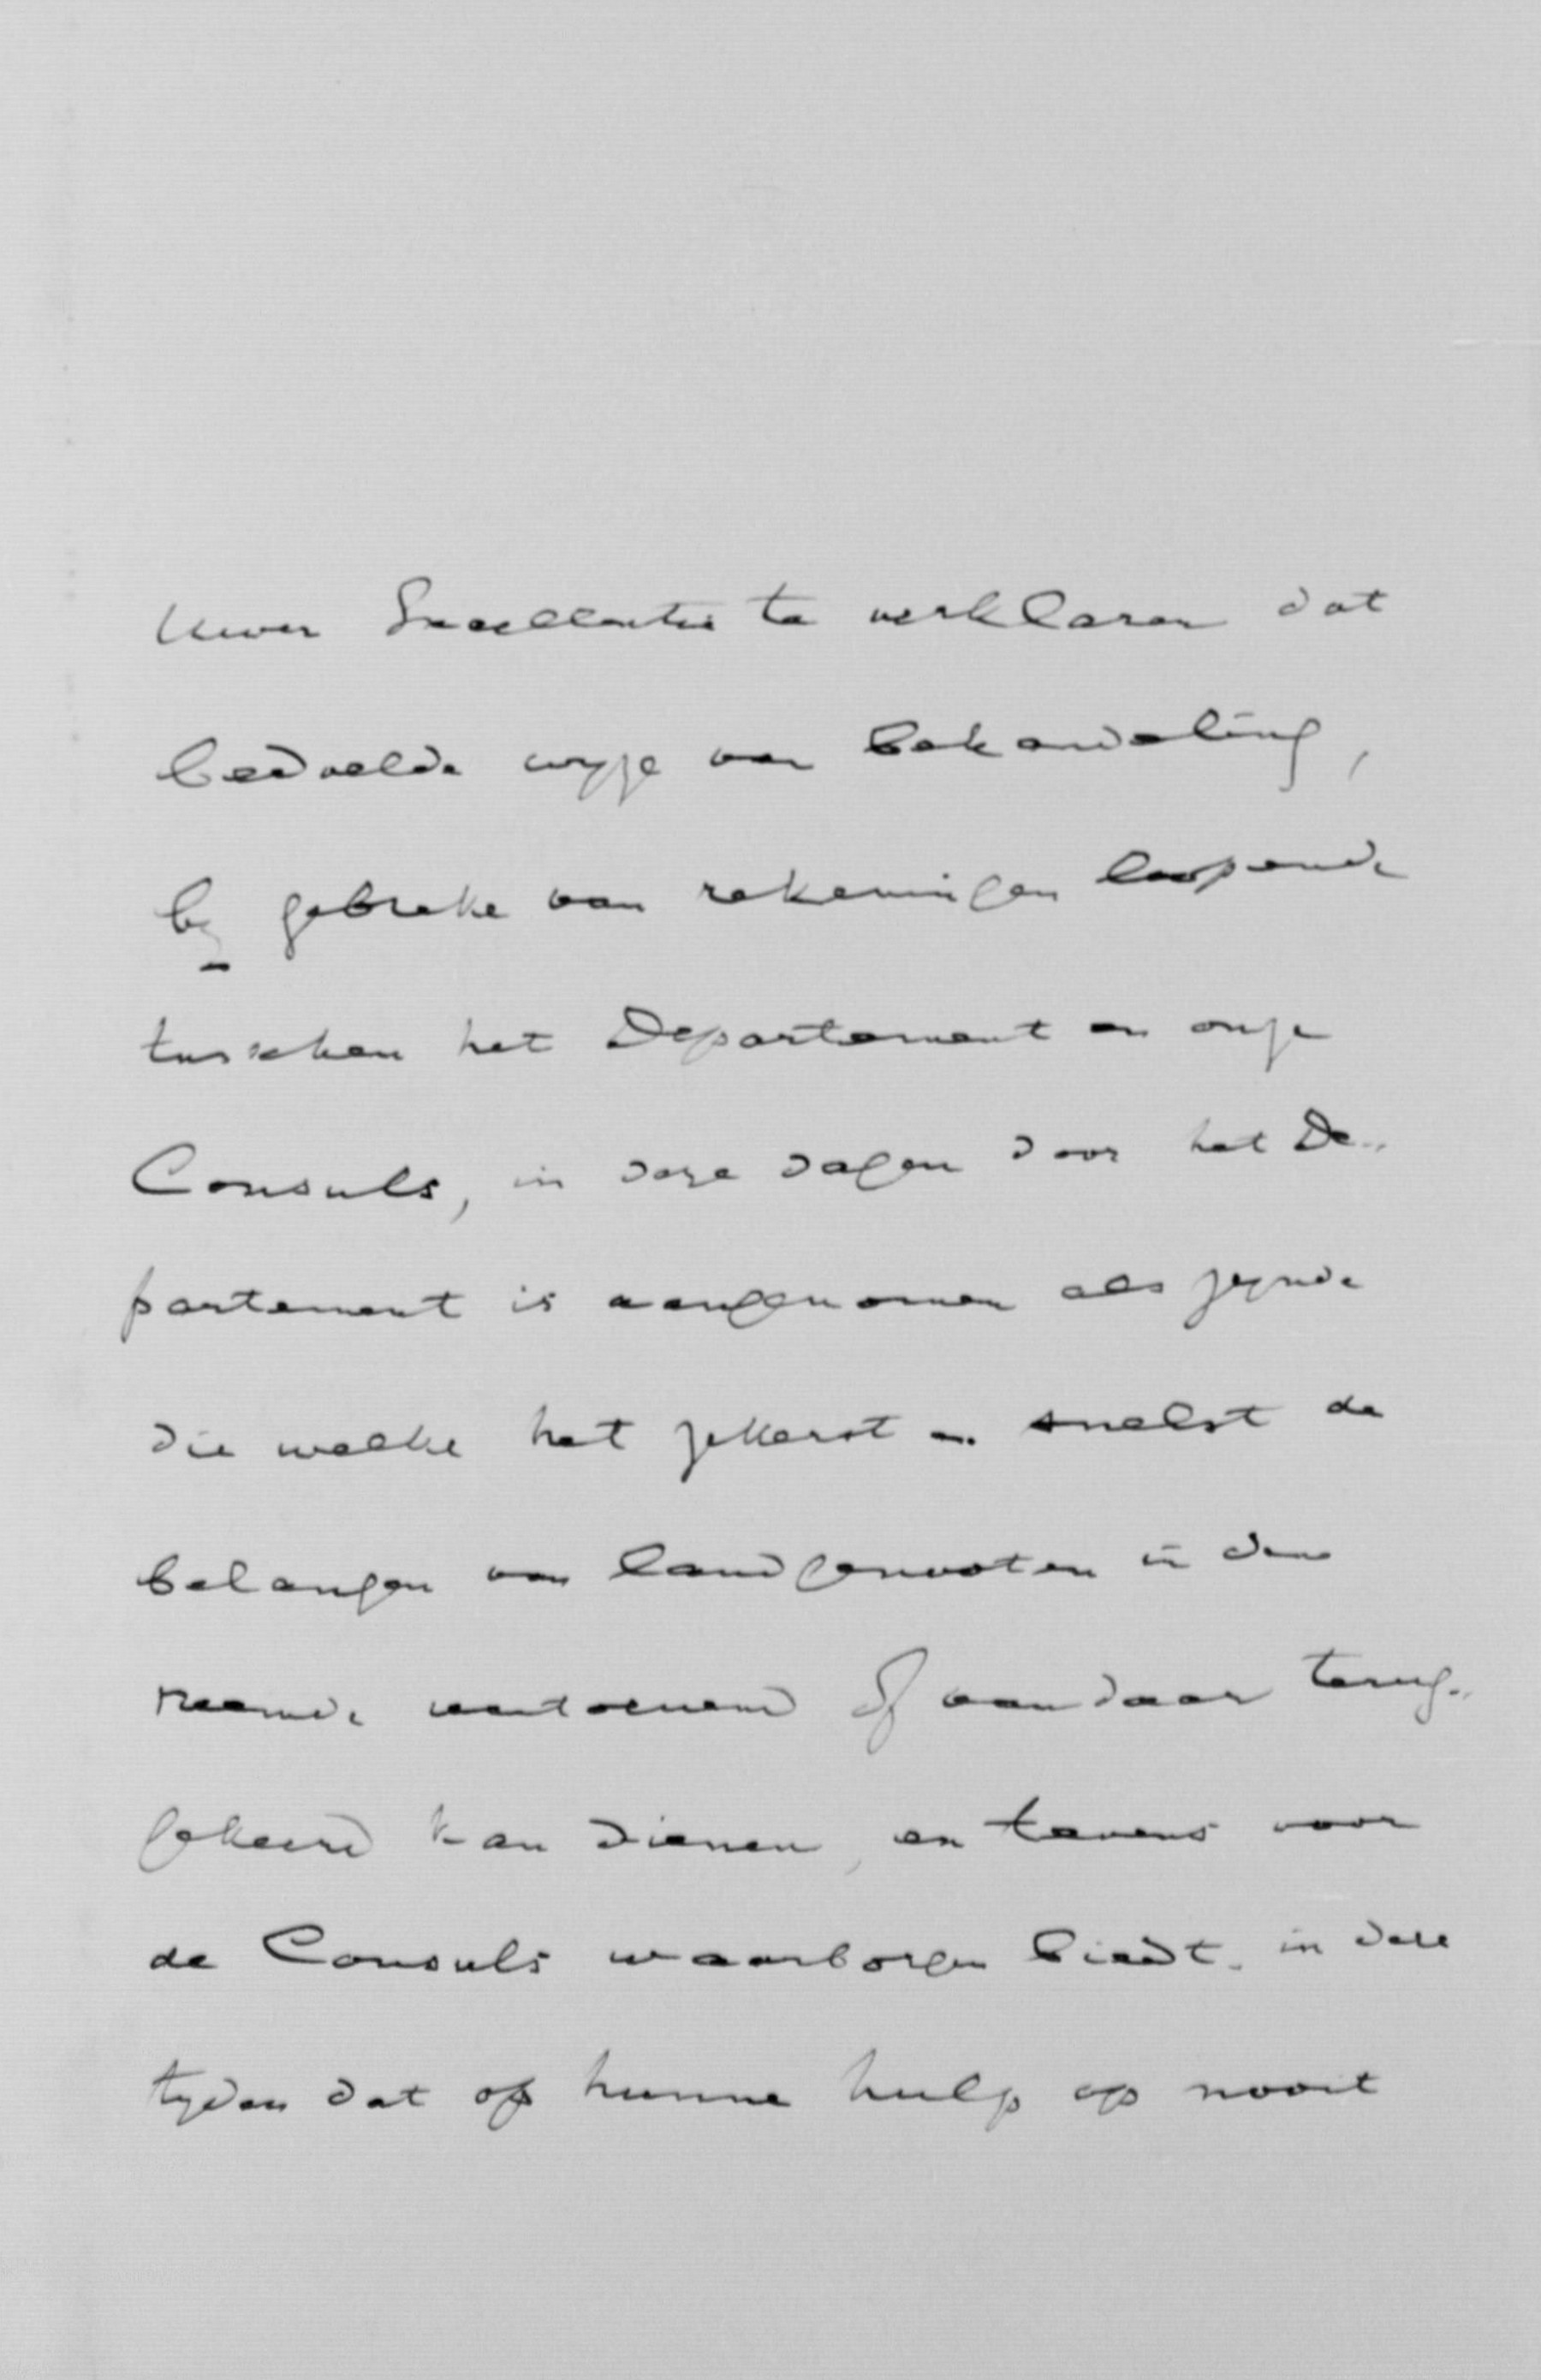 Uwer Excellentie te verklaren dat
bedoelde wyze van behandeling,
by gebreke van rekeningen loopende
tusschen het Departement en onze
Consuls, in deze dagen door het De-
partement is aangenomen als zynde
die welke het zekerst en snelst de
belangen van landgenooten in den
vreemde vertoevend of van daar terug-
gekeerd kan dienen, en tevens voor
de Consuls waarborgen biedt in deze
tyden dat op hunne hulp op nooit